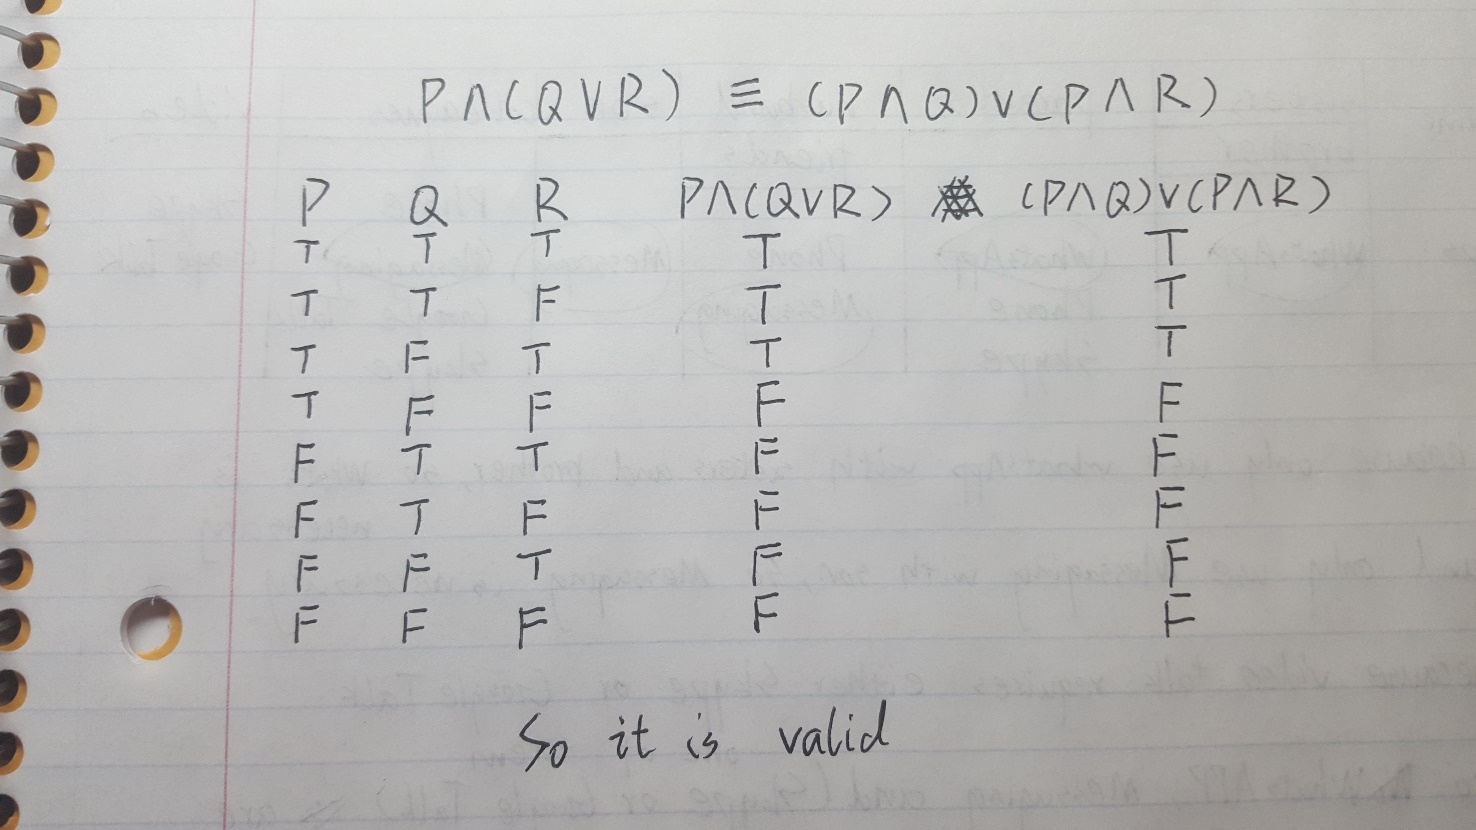 P∧(Q∨R) ≡ (P∧Q)∨(P∧R)
P Q R P∧(Q∨R) (P∧Q)∨(P∧R)
T T T T T
T T F T T
T F T T T
T F F F F
F T T F F
F T F F F
F F T F F
F F F F F
So it is valid